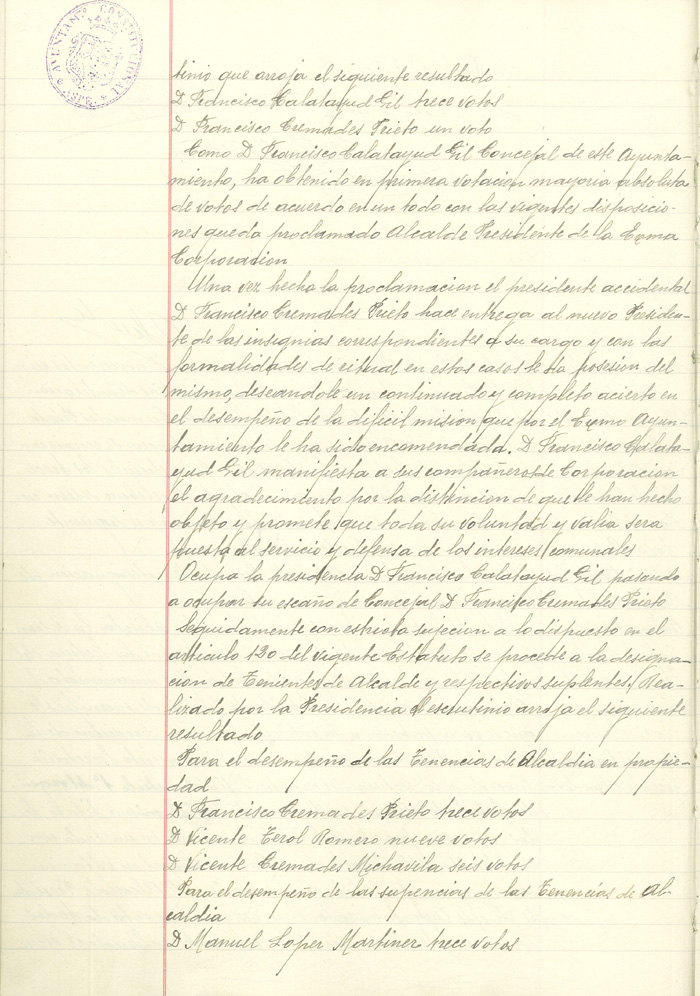 AYUNTAMTO CONSTITUCIONAL
tinio que arroja el siguiente resultado
D Francisco Calatayud Gil trece votos
D Francisco Cremades Prieto un voto
Como D Francisco Calatayud Gil Concejal de este Ayunta-
miento, ha obtenido en primera votacion mayoria absoluta
de votos de acuerdo en un todo con las vigentes disposicio-
nes queda proclamado Alcalde Presidente de la Exma
Corporacion
Una vez hecha la proclamacion el presidente accidental
D Francisco Cremades Prieto hace entrega al nuevo Presiden-
te de las insignias correspondientes a su cargo y con las
formalidades de ritual en estos casos le da posesion del
mismo, deseandole un continuado y completo acierto en
el desempeño de la dificil mision que por el Exmo Ayun-
tamiento le ha sido encomendada. D Francisco Calata-
yud Gil manifiesta a sus compañeros de Corporacion
el agradecimiento por la distincion de que le han hecho
objeto y promete que toda su voluntad y valia sera
puesta al servicio y defensa de los intereses comunales
Ocupa la presidencia D Francisco Calatayud Gil pasando
a ocupar su escaño de Concejal D Francisco Cremades Prieto
Seguidamente con estricta sujecion a lo dispuesto en el
articulo 120 del vigente Estatuto se procede a la designa-
cion de Tenientes de Alcalde y respectivos suplentes, Rea-
lizado por la Presidencia el escrutinio arroja el siguiente
resultado
Para el desempeño de las Tenencias de Alcaldia en propie-
dad
D Francisco Cremades Prieto trece votos
D Vicente Terol Romero nueve votos
D Vicente Cremades Michavila seis votos
Para el desempeño de las supencias de las Tenencias de Al-
caldia
D Manuel Lopez Martinez trece votos